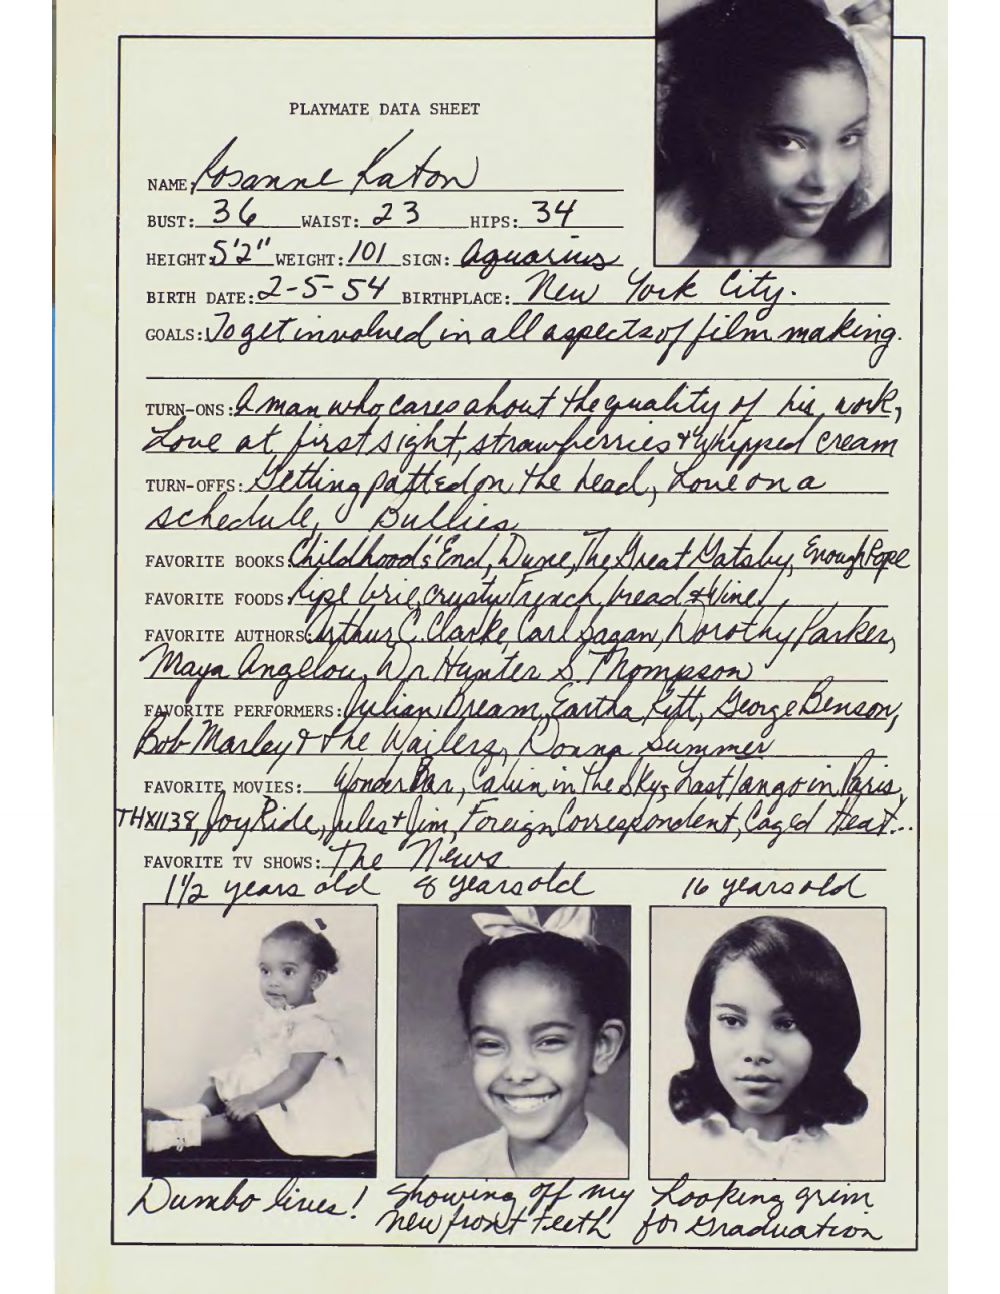 PLAYMATE DATA SHEET
NAME: Rosanne Katon
BUST: 36 WAIST: 23 HIPS: 34
HEIGHT: 5'2" WEIGHT: 101 SIGN: Aquarius
BIRTH DATE: 2-5-54 BIRTHPLACE: New York City.
GOALS: To get involved in all aspects of film making.
TURN-ONS: A man who cares about the quality of his work,
Love at first sight, strawberries & whipped cream
TURN-OFFS: Getting patted on the head, Love on a
schedule, Bullies
FAVORITE BOOKS: Childhood's End, Dune, The Great Gatsby, Enough Rope
FAVORITE FOODS: Ripe brie, crusty French bread & Wine
FAVORITE AUTHORS: Arthur C. Clarke, Carl Sagan, Dorothy Parker,
Maya Angelou, Dr Hunter S. Thompson
FAVORITE PERFORMERS: Julian Bream, Eartha Kitt, George Benson,
Bob Marley & the Wailers, Donna Summer
FAVORITE MOVIES: Wonder Bar, Cabin in the Sky, Last Tango in Paris,
THX1138, Joy Ride, Jules + Jim, Foreign Correspondent, Caged Heat...
FAVORITE TV SHOWS: The News
1 1/2 years old 8 years old 16 years old
Dumbo lives! Showing off my Looking grim
new front teeth for Graduation